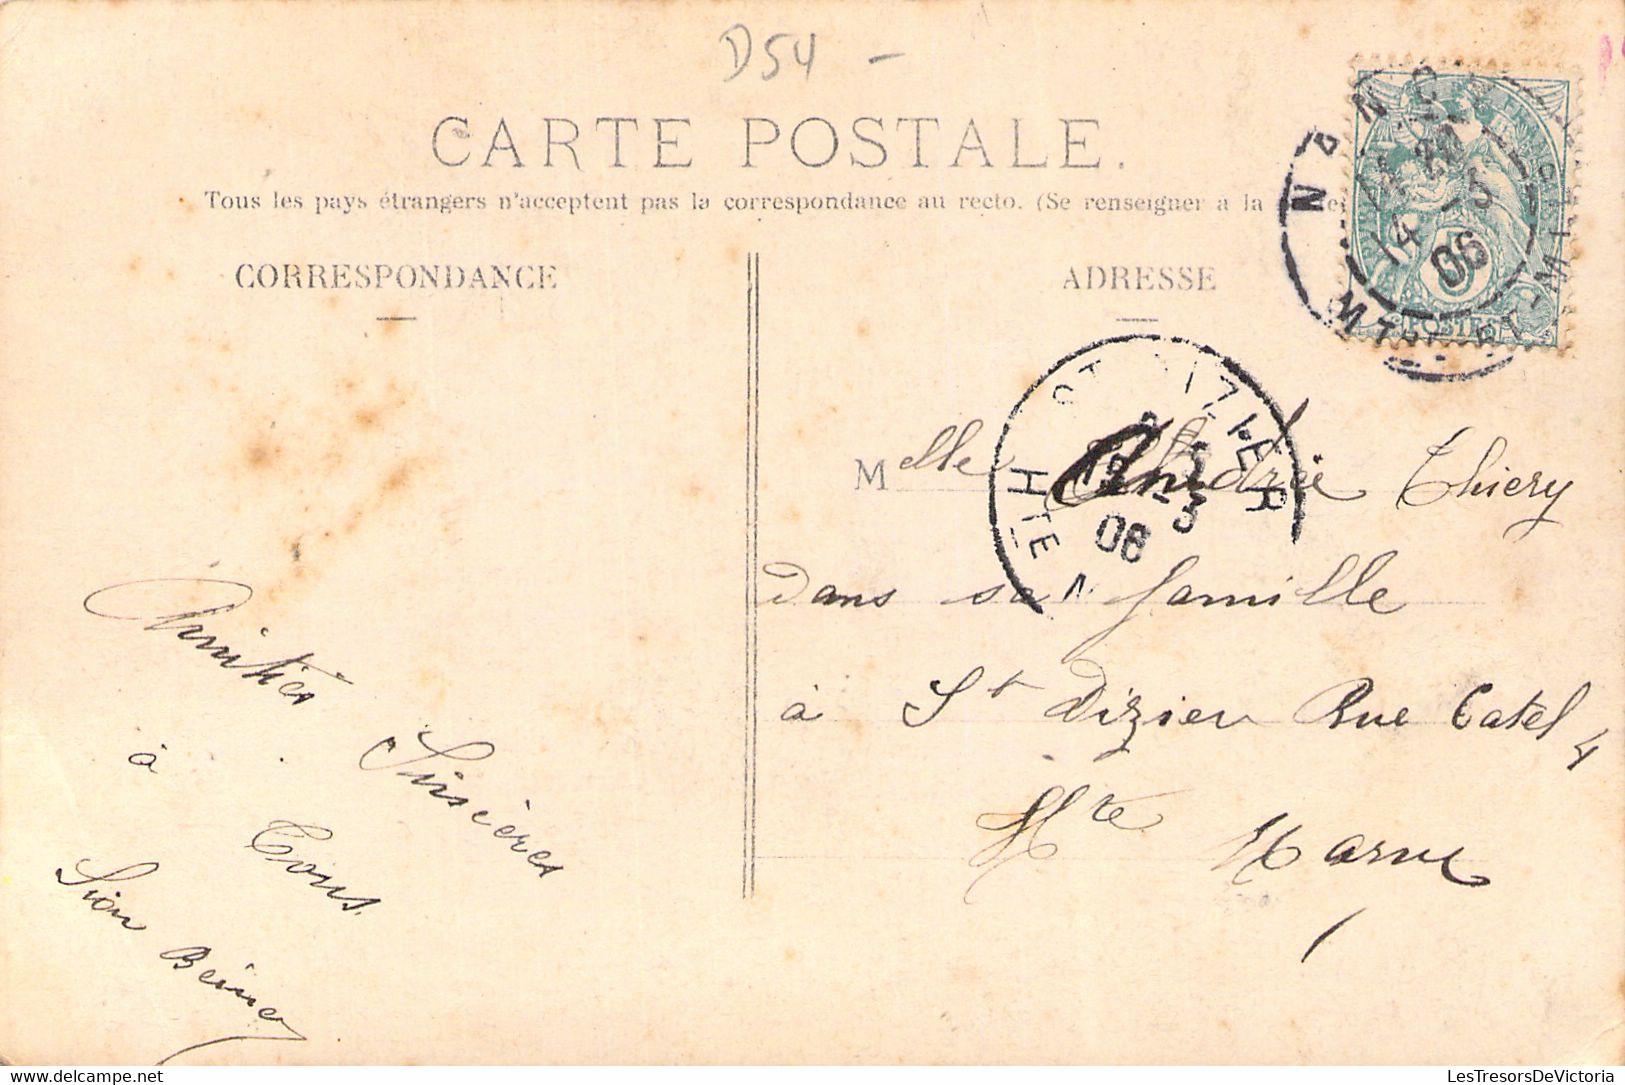 D54 -
CARTE POSTALE.
Tous les pays étrangers n'acceptent pas la correspondance au recto. (Se renseigner a la
CORRESPONDANCE
ADRESSE
NANCY
MTHE-ET-M
14 -5
06
POSTES
ST DIZIER
HTE M
15 -5
06
Melle Andrée Thiery
Dans sa famille
à St Dizier Rue Catel 4
Hte Marne
Amitiés Sincères
à Tous.
Léon
LesTresorsDeVictoria